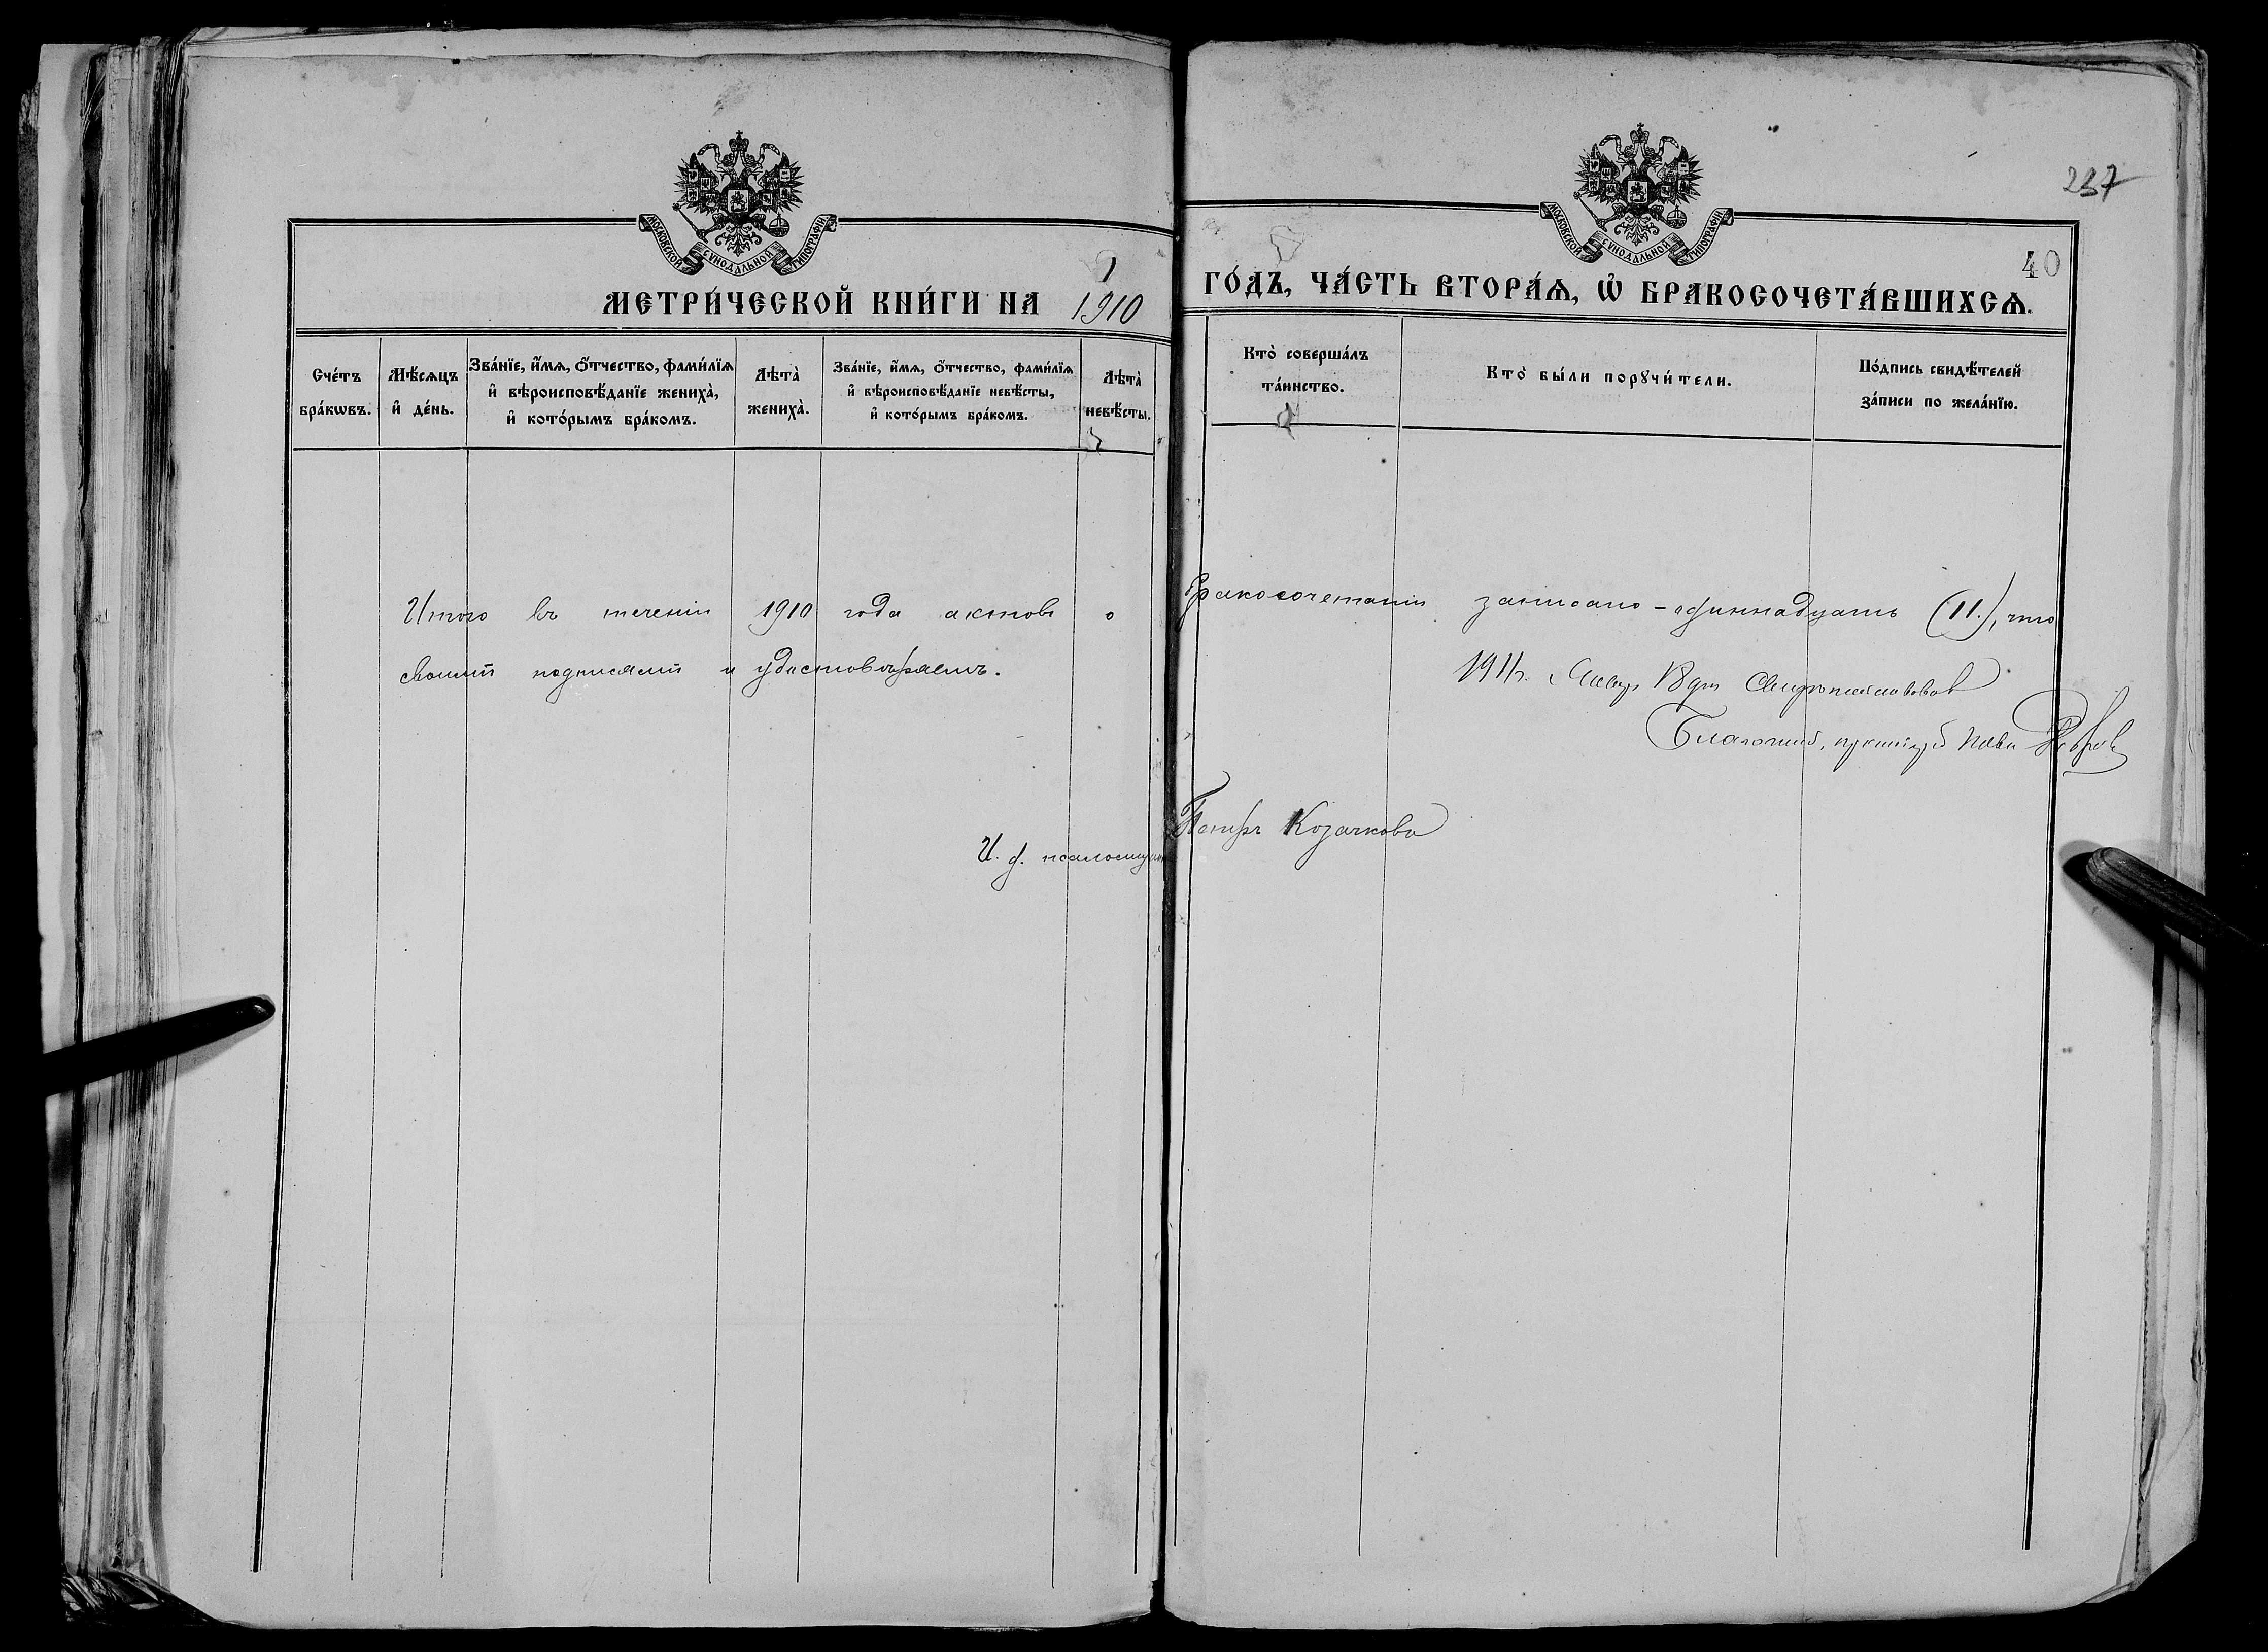 237
40
МОСКОВСКОЙ СѴНОДАЛЬНОЙ ТИПОГРАФІИ
МОСКОВСКОЙ СѴНОДАЛЬНОЙ ТИПОГРАФІИ
МЕТРИ́ЧЕСКОЙ КНИ́ГИ НА 1910 ГО́ДЪ, ЧА́СТЬ ВТОРА́Ѧ, Ѽ БРАКОСОЧЕТА́ВШИХСѦ.
Сче́тъ бра́кѡвъ.
Мѣ́сѧцъ и҆ де́нь.
Зва́нїе, и҆́мѧ, о҆́тчество, фами́лїѧ и҆ вѣроисповѣ́данїе жениха̀, и҆ кото́рымъ бра́комъ.
Лѣта̀ жениха̀.
Зва́нїе, и҆́мѧ, о҆́тчество, фами́лїѧ и҆ вѣроисповѣ́данїе невѣ́сты, и҆ кото́рымъ бра́комъ.
Лѣта̀ невѣ́сты.
Кто̀ соверша́лъ та́инство.
Кто̀ бы́ли порꙋчи́тели.
По́дпись свидѣ́телей за́писи по жела́нїю.
Итого въ теченіи 1910 года актовъ о бракосочетаніи записано - одиннадцать (11.), что
своими подписями и удостовѣряемъ.
1911г. Январ 18 дня
Благочин,
И. д. псаломщика Петръ Козачковъ